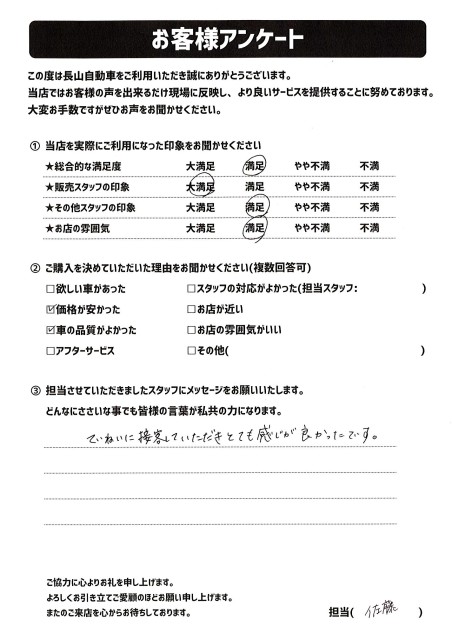 お客様アンケート
この度は長山自動車をご利用いただき誠にありがとうございます。
当店ではお客様の声を出来るだけ現場に反映し、より良いサービスを提供することに努めております。
大変お手数ですがぜひお声をお聞かせください。
① 当店を実際にご利用になった印象をお聞かせください
★総合的な満足度 大満足 満足 やや不満 不満
★販売スタッフの印象 大満足 満足 やや不満 不満
★その他スタッフの印象 大満足 満足 やや不満 不満
★お店の雰囲気 大満足 満足 やや不満 不満
② ご購入を決めていただいた理由をお聞かせください(複数回答可)
□欲しい車があった □スタッフの対応がよかった(担当スタッフ: )
☑価格が安かった □お店が近い
☑車の品質がよかった □お店の雰囲気がいい
□アフターサービス □その他( )
③ 担当させていただきましたスタッフにメッセージをお願いいたします。
どんなにささいな事でも皆様の言葉が私共の力になります。
ていねいに接客していただきとても感じが良かったです。
ご協力に心よりお礼を申し上げます。
よろしくお引き立てご愛顧のほどお願い申し上げます。
またのご来店を心からお待ちしております。
担当( 佐藤 )